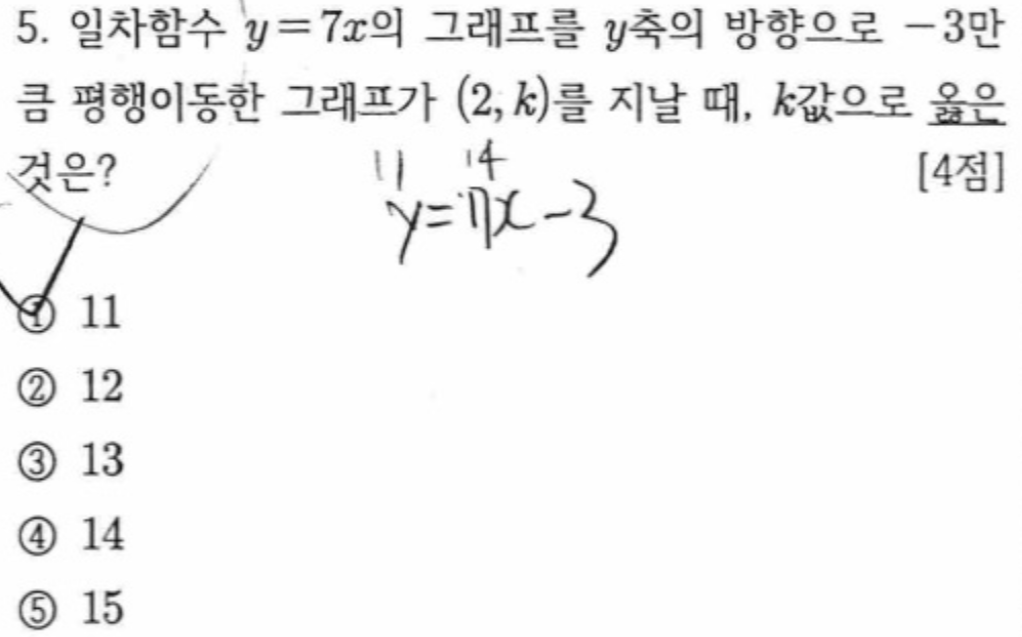 5. 일차함수 y=7x의 그래프를 y축의 방향으로 -3만
큼 평행이동한 그래프가 (2, k)를 지날 때, k값으로 옳은
것은? [4점]
11 14
y=7x-3
① 11
② 12
③ 13
④ 14
⑤ 15